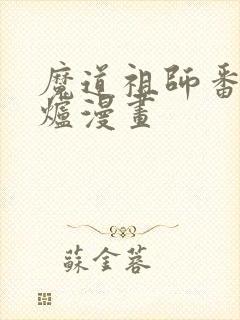 魔道祖師番
爐漫畫
蘇金蓉